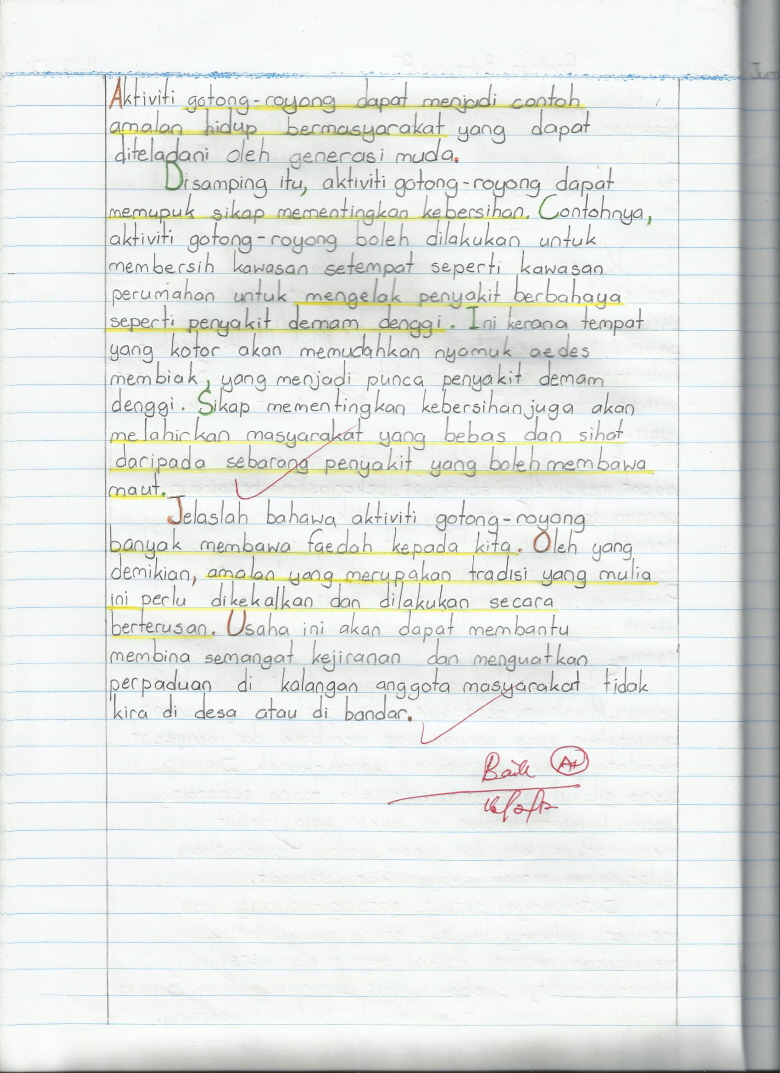 Aktiviti gotong-royong dapat menjadi contoh
amalan hidup bermasyarakat yang dapat
diteladani oleh generasi muda.
Disamping itu, aktiviti gotong-royong dapat
memupuk sikap mementingkan kebersihan. Contohnya,
aktiviti gotong-royong boleh dilakukan untuk
membersih kawasan setempat seperti kawasan
perumahan untuk mengelak penyakit berbahaya
seperti penyakit demam denggi. Ini kerana tempat
yang kotor akan memudahkan nyamuk aedes
membiak, yang menjadi punca penyakit demam
denggi. Sikap mementingkan kebersihan juga akan
melahirkan masyarakat yang bebas dan sihat
daripada sebarang penyakit yang boleh membawa
maut.
Jelaslah bahawa aktiviti gotong-royong
banyak membawa faedah kepada kita. Oleh yang
demikian, amalan yang merupakan tradisi yang mulia
ini perlu dikekalkan dan dilakukan secara
berterusan. Usaha ini akan dapat membantu
membina semangat kejiranan dan menguatkan
perpaduan di kalangan anggota masyarakat tidak
kira di desa atau di bandar.
Baik A+